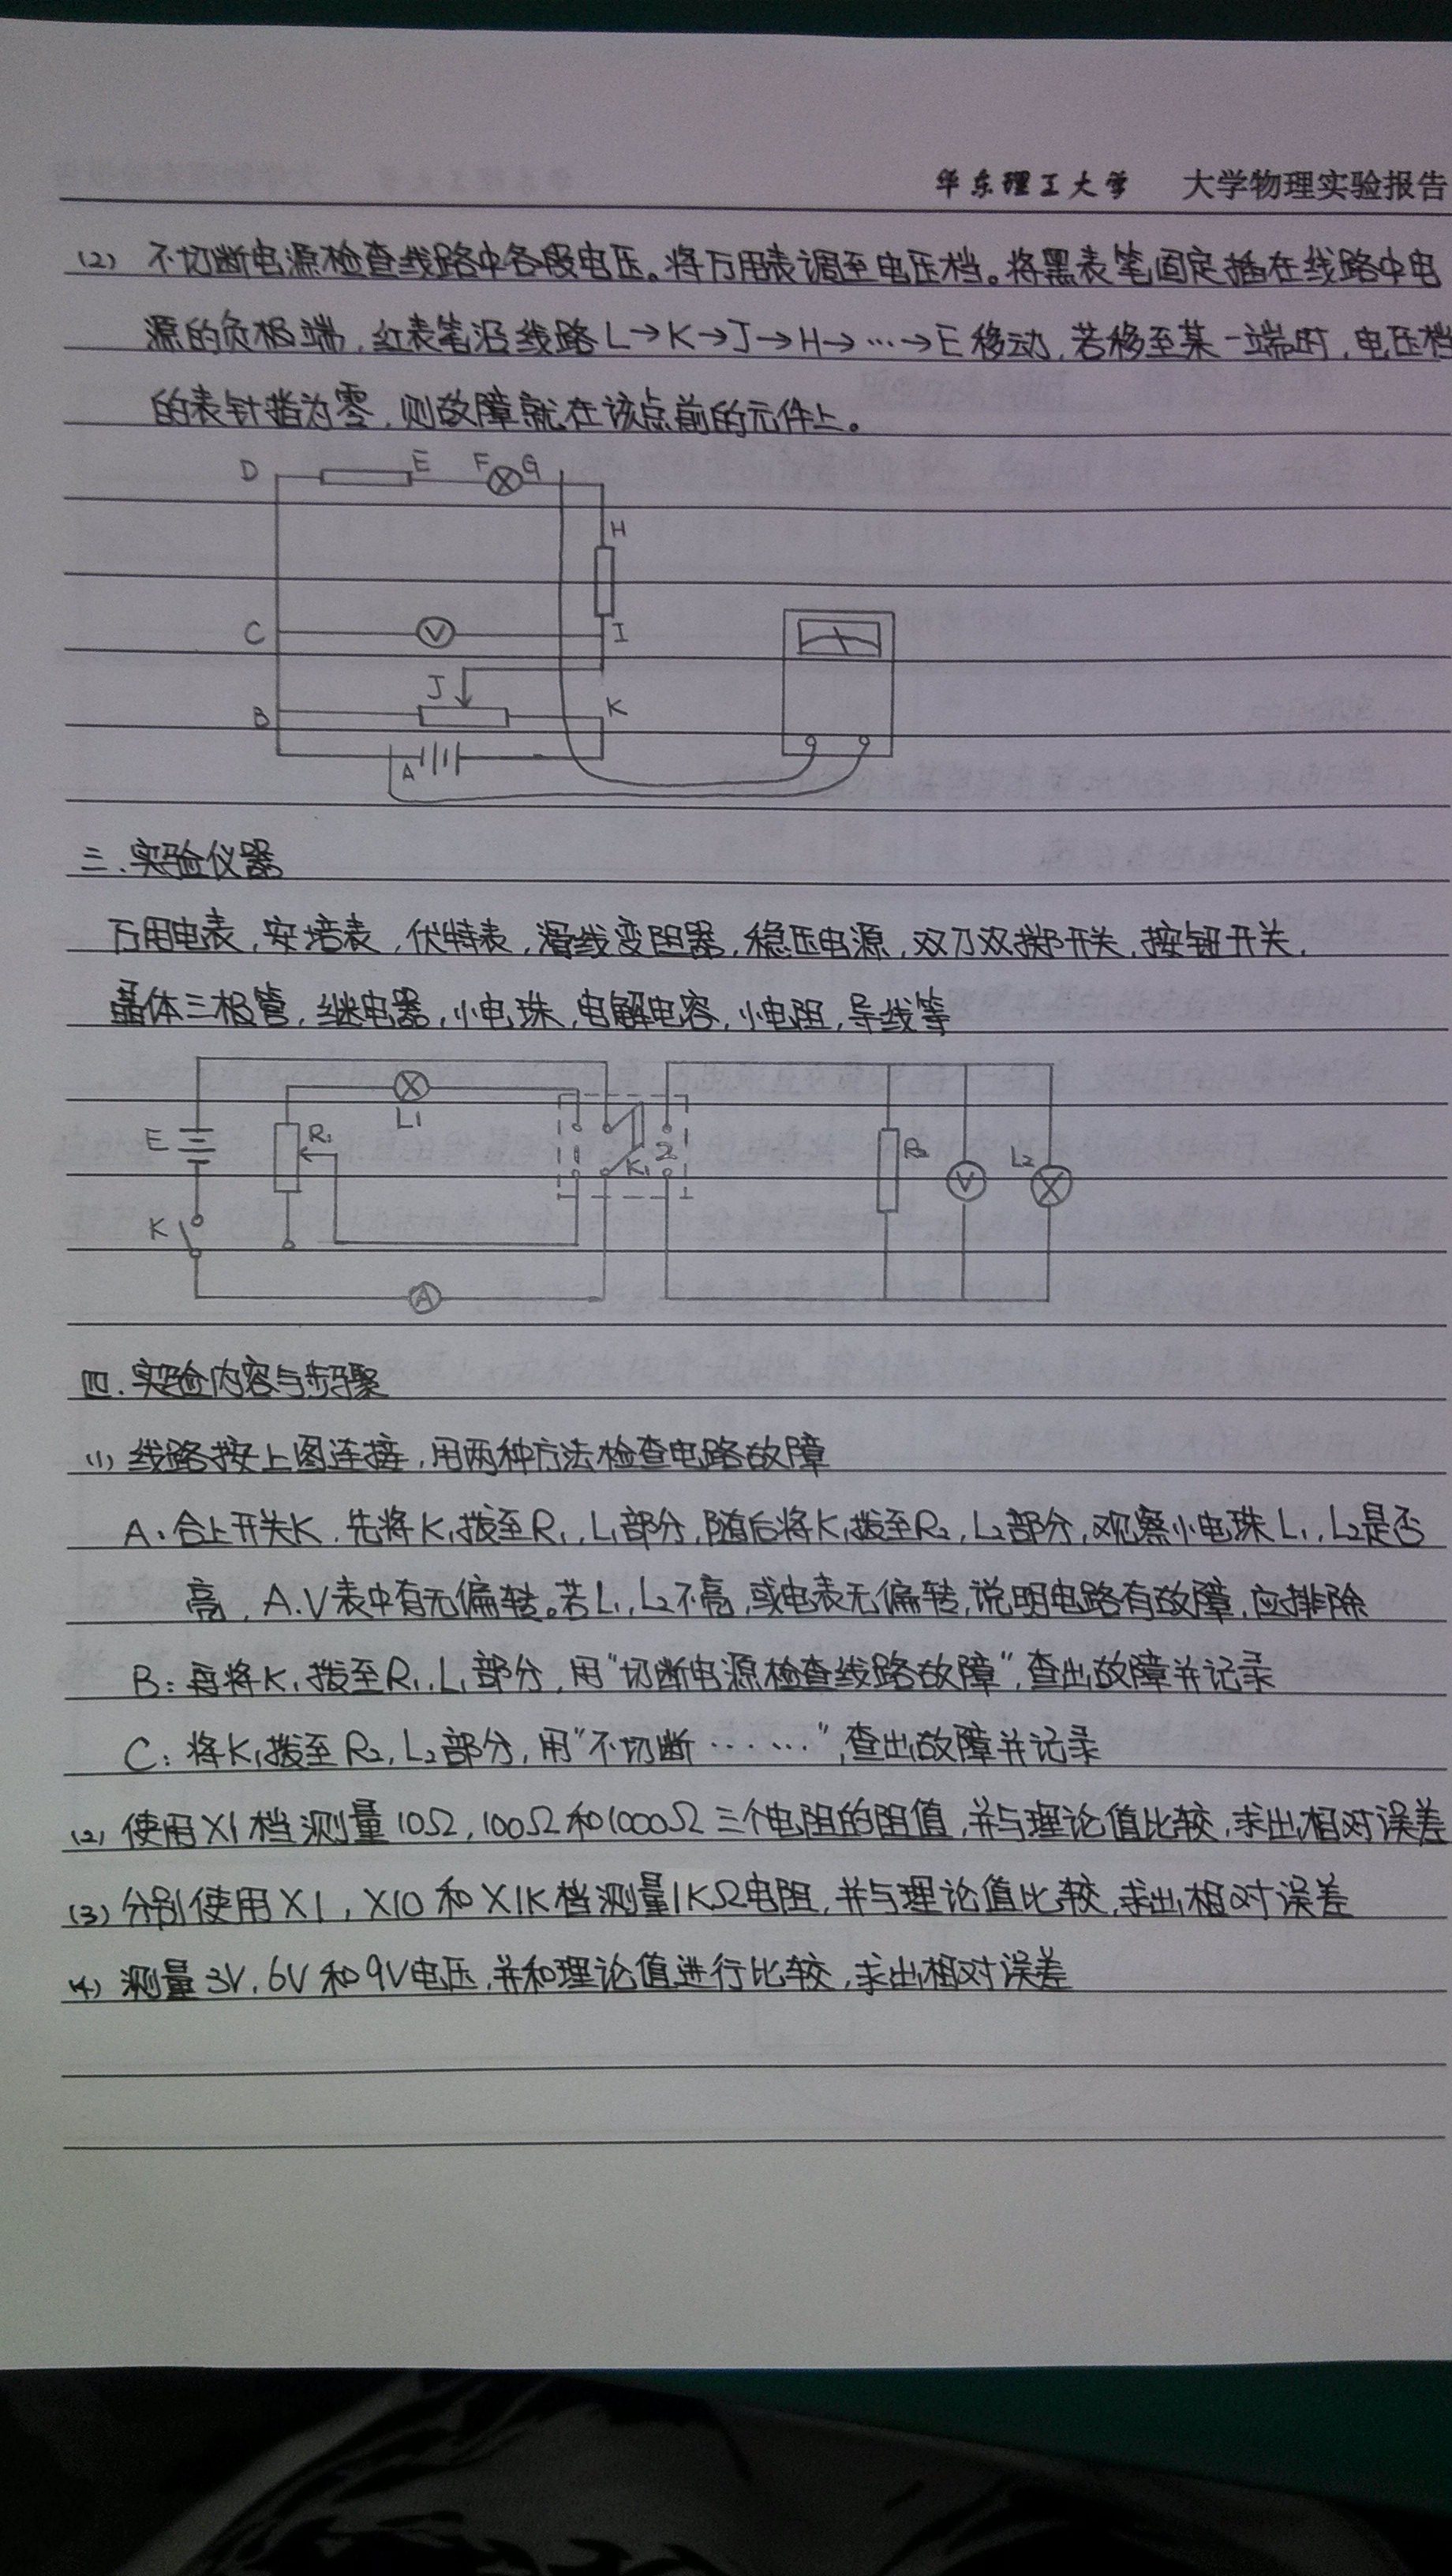 华东理工大学 大学物理实验报告
(2) 不切断电源检查线路中各段电压。将万用表调至电压档。将黑表笔固定插在线路中电
源的负极端,红表笔沿线路L→K→J→H→…→E移动,若移至某一端时,电压档
的表针指为零,则故障就在该点前的元件上。
D E F G
H
C V I
J
B K
A
三.实验仪器
万用电表,安培表,伏特表,滑线变阻器,稳压电源,双刀双掷开关,按钮开关,
晶体三极管,继电器,小电珠,电解电容,小电阻,导线等
L1
E R1 1 K1 2 R2 V L2
K
A
四.实验内容与步骤
(1) 线路按上图连接,用两种方法检查电路故障
A:合上开关K.先将K1拨至R1,L1部分,随后将K1拨至R2,L2部分,观察小电珠L1,L2是否
亮,A.V表中有无偏转。若L1,L2不亮,或电表无偏转,说明电路有故障,应排除
B:再将K1拨至R1.L1部分,用"切断电源检查线路故障",查出故障并记录
C:将K1拨至R2,L2部分,用"不切断……",查出故障并记录
(2) 使用X1档测量10Ω,100Ω和1000Ω三个电阻的阻值,并与理论值比较,求出相对误差
(3) 分别使用X1,X10和X1K档测量1KΩ电阻,并与理论值比较,求出相对误差
(4) 测量3V.6V和9V电压,并和理论值进行比较,求出相对误差